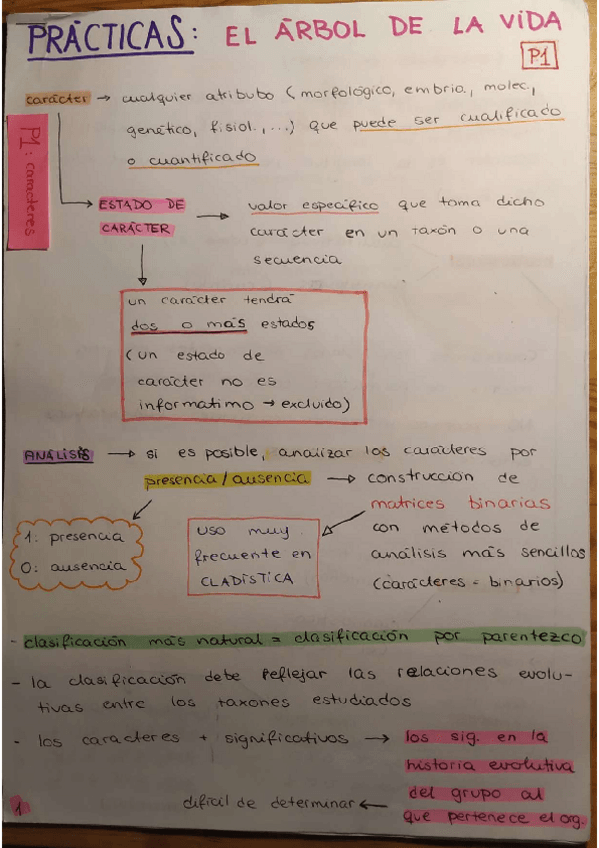 PRÁCTICAS: EL ÁRBOL DE LA VIDA
P1
carácter → cualquier atributo (morfológico, embrio., molec.,
genético, fisiol., ...) que puede ser cualificado
o cuantificado
P1: caracteres
ESTADO DE
CARÁCTER
→ valor específico que toma dicho
carácter en un taxón o una
secuencia
un carácter tendrá
dos o más estados
(un estado de
carácter no es
informatimo → excluido)
ANÁLISIS → si es posible, analizar los carácteres por
presencia/ausencia → construcción de
matrices binarias
con métodos de
análisis más sencillos
(carácteres = binarios)
1: presencia
0: ausencia
USO muy
frecuente en
CLADÍSTICA
- clasificación más natural = clasificación por parentezco
- la clasificación debe reflejar las relaciones evolu-
tivas entre los taxones estudiados
- los caracteres + significativos → los sig. en la
historia evolutiva
del grupo al
que pertenece el org.
difícil de determinar ←
1